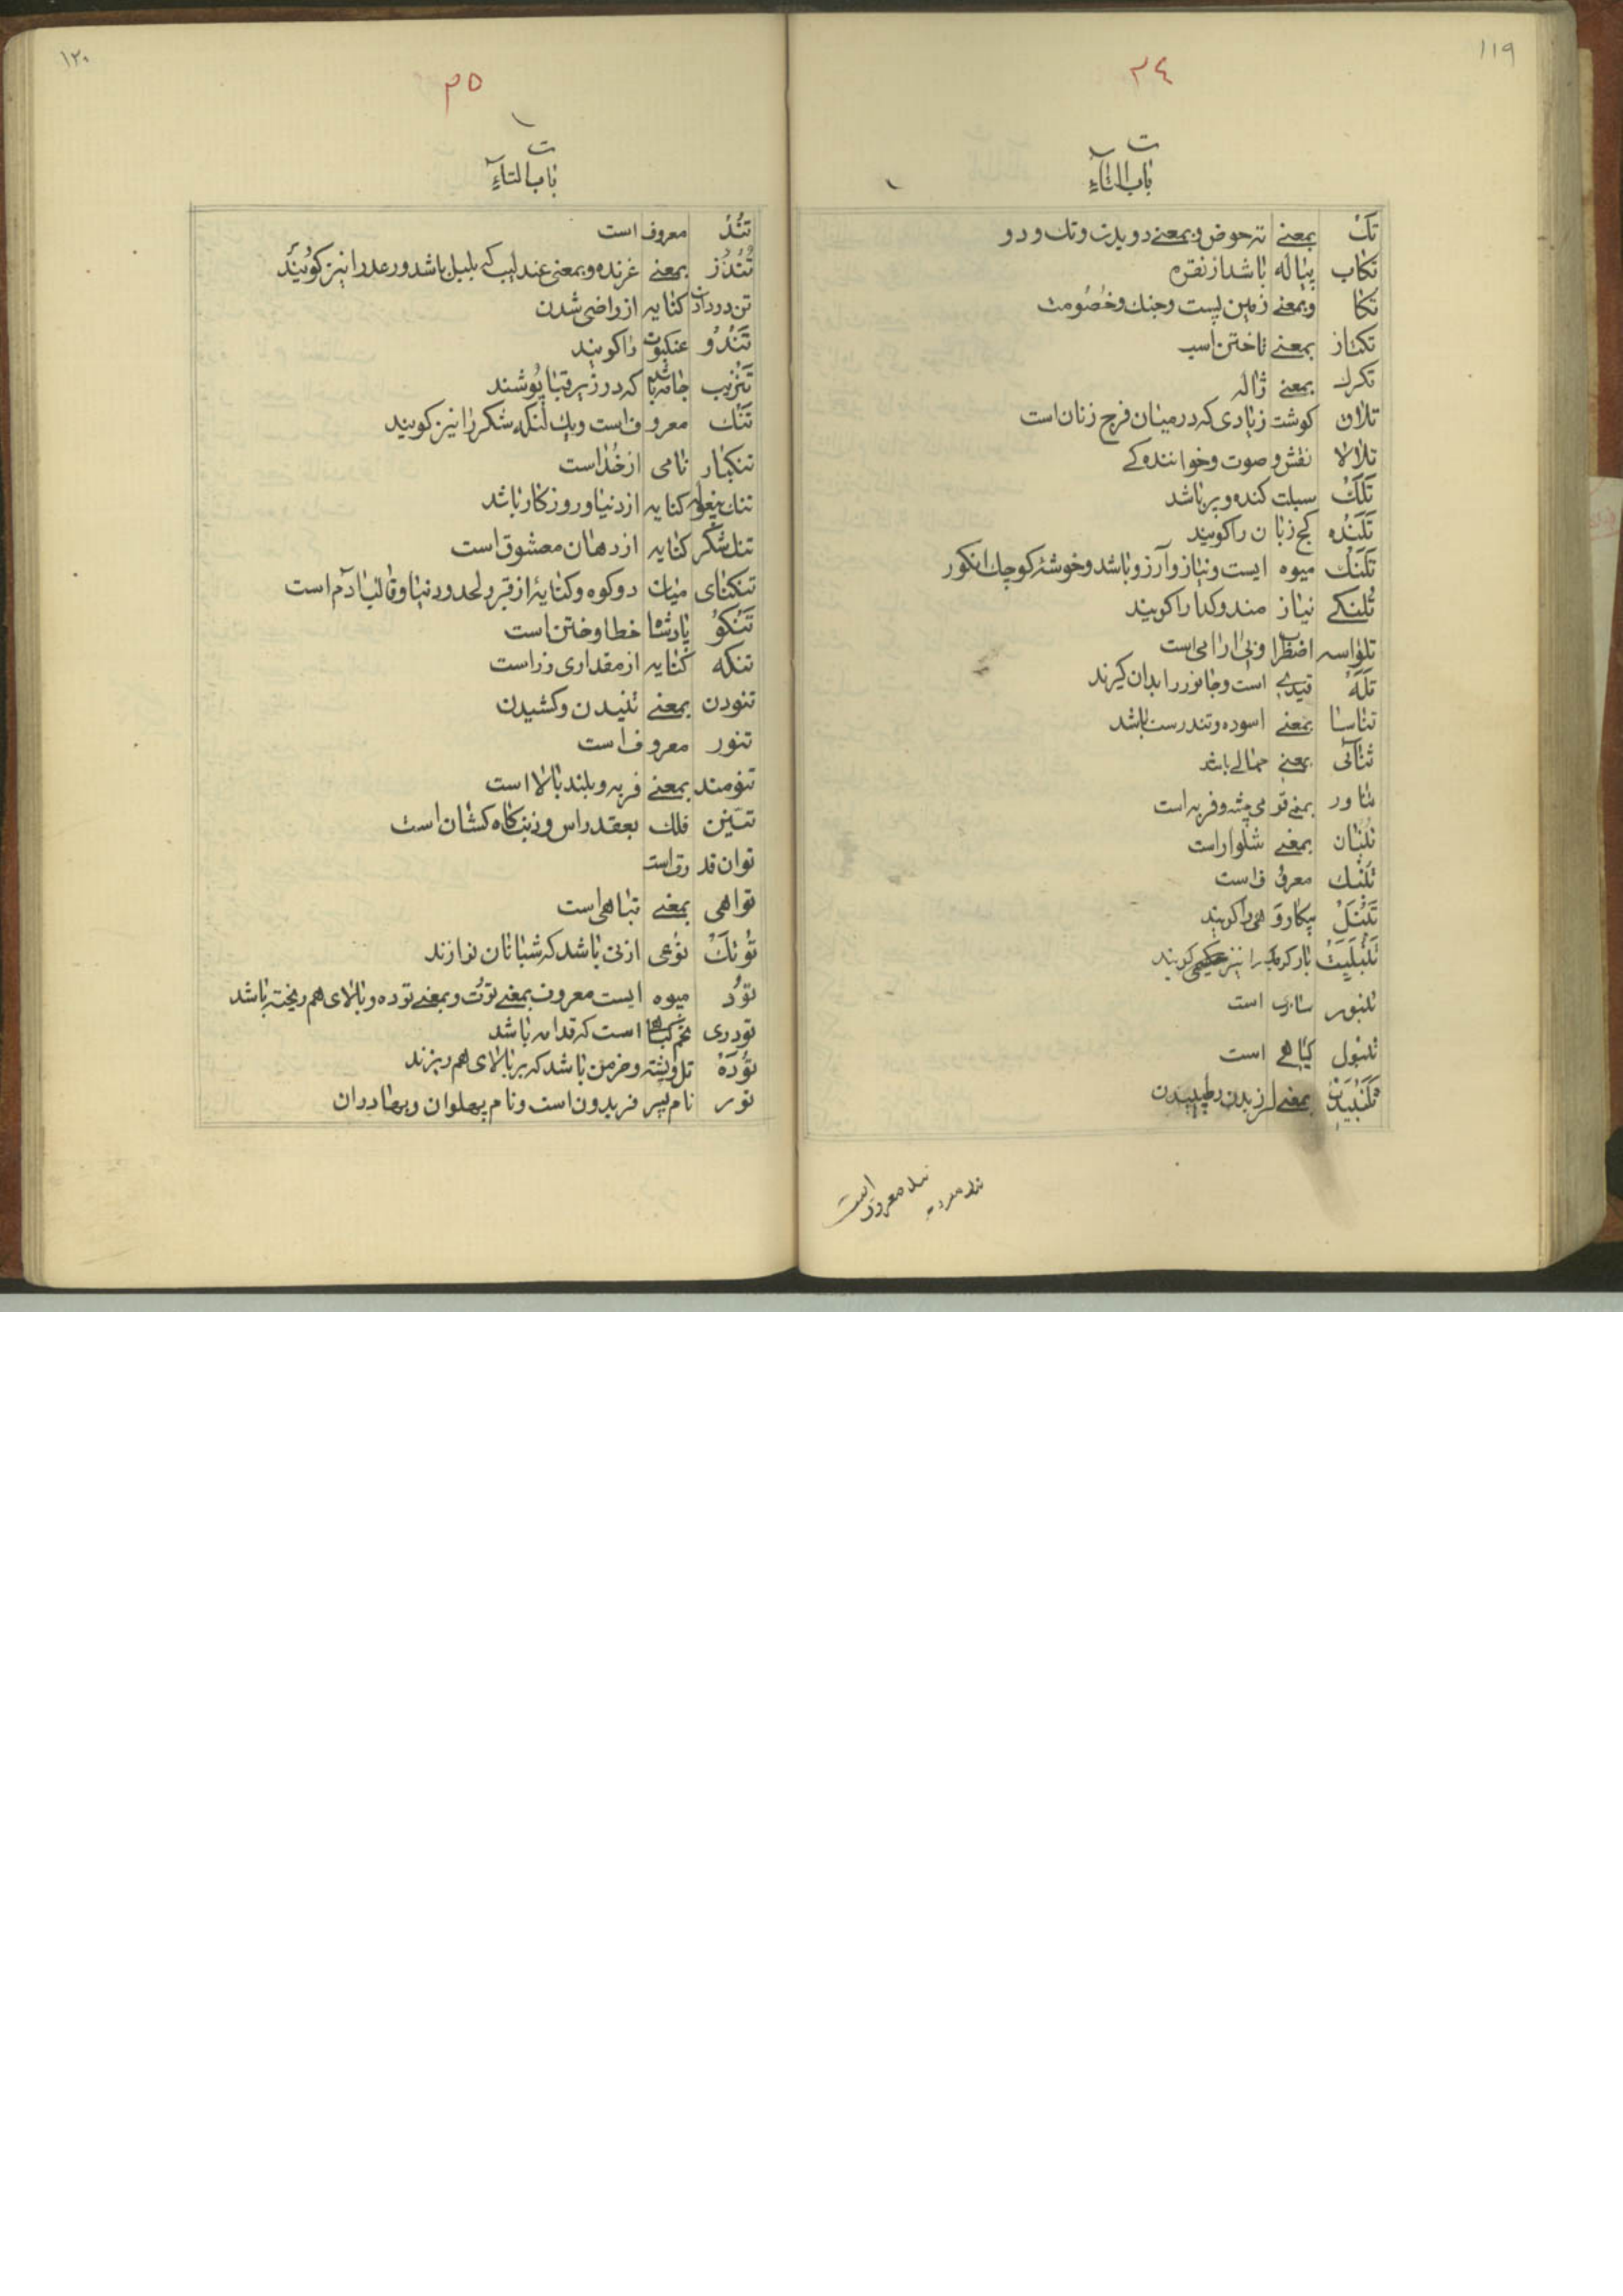 ١١٩
٢٤
ت
باب التاء
تک بمعنے ته حوض و بمعنے دویدن و تک و دو
تکاب پیاله باشد از نقره
تکا و بمعنے زمین پست و جنک و خصومت
تکتاز بمعنے تاختن اسب
تکرک بمعنے ژاله
تلاق کوشت زیادی که در میان فرج زنان است
تلالا نقش و صوت و خوانندہ کے
تلک سبلت کنده و بر باشد
تلنده کج زبان را کویند
تلنک میوه ایست و نیاز و آرزو باشد و خوشهٔ کوچک انکور
تلنکے نیاز مند و کدا را کویند
تلواسه اضطراب و بی ارامی است
تله قیدی است و جانور را بدان کیرند
تناسا بمعنے اسوده و تندرست باشد
بمعنے حمالے باشد
تناور بمعنے قوی جثه و فربه است
تنبان بمعنے شلوار است
تنبک معروف است
تنبل بیکار را کویند
را نیز کویند
تنبور سازی است
تنبول کیاهے است
تنبیدن بمعنے لرزیدن و طپیدن
تند معروف است
١٢٠
٣٥
ت
باب التاء
تند معروف است
تندر بمعنے غرنده و بمعنی عندلیب که بلبل باشد و رعد را نیز کویند
تن در دادن کنایه از راضی شدن
تندو عنکبوت را کویند
تنزیب جامه باشد که در زیر قبا پوشند
تنک معروف است و یک لنکه شکر را نیز کویند
تنکبار نامی از خدا است
تنک بیغوله کنایه از دنیا و روزکار باشد
تنک شکر کنایه از دهان معشوق است
تنکنای میان دو کوه و کنایه از قبر و لحد و دنیا و قالب آدم است
تنکو پادشاه خطا و ختن است
تنکه کنایه از مقداری زر است
تنودن بمعنے تنیدن و کشیدن
تنور معروف است
تنومند بمعنے فربه و بلند بالا است
تنین فلک بعقد راس و ذنب کاه کشان است
توان قدرت است
تواهی بمعنے تباهی است
توتک نوعی از نی باشد که شبانان نوازند
تود میوه ایست معروف بمعنے توت و بمعنے توده و بالای هم ریخته باشد
تودری تخم کیاه است که قدامه باشد
توده تل و پشته و خرمن باشد که بر بالای هم ریزند
تور نام پسر فریدون است و نام پهلوان و بهادران